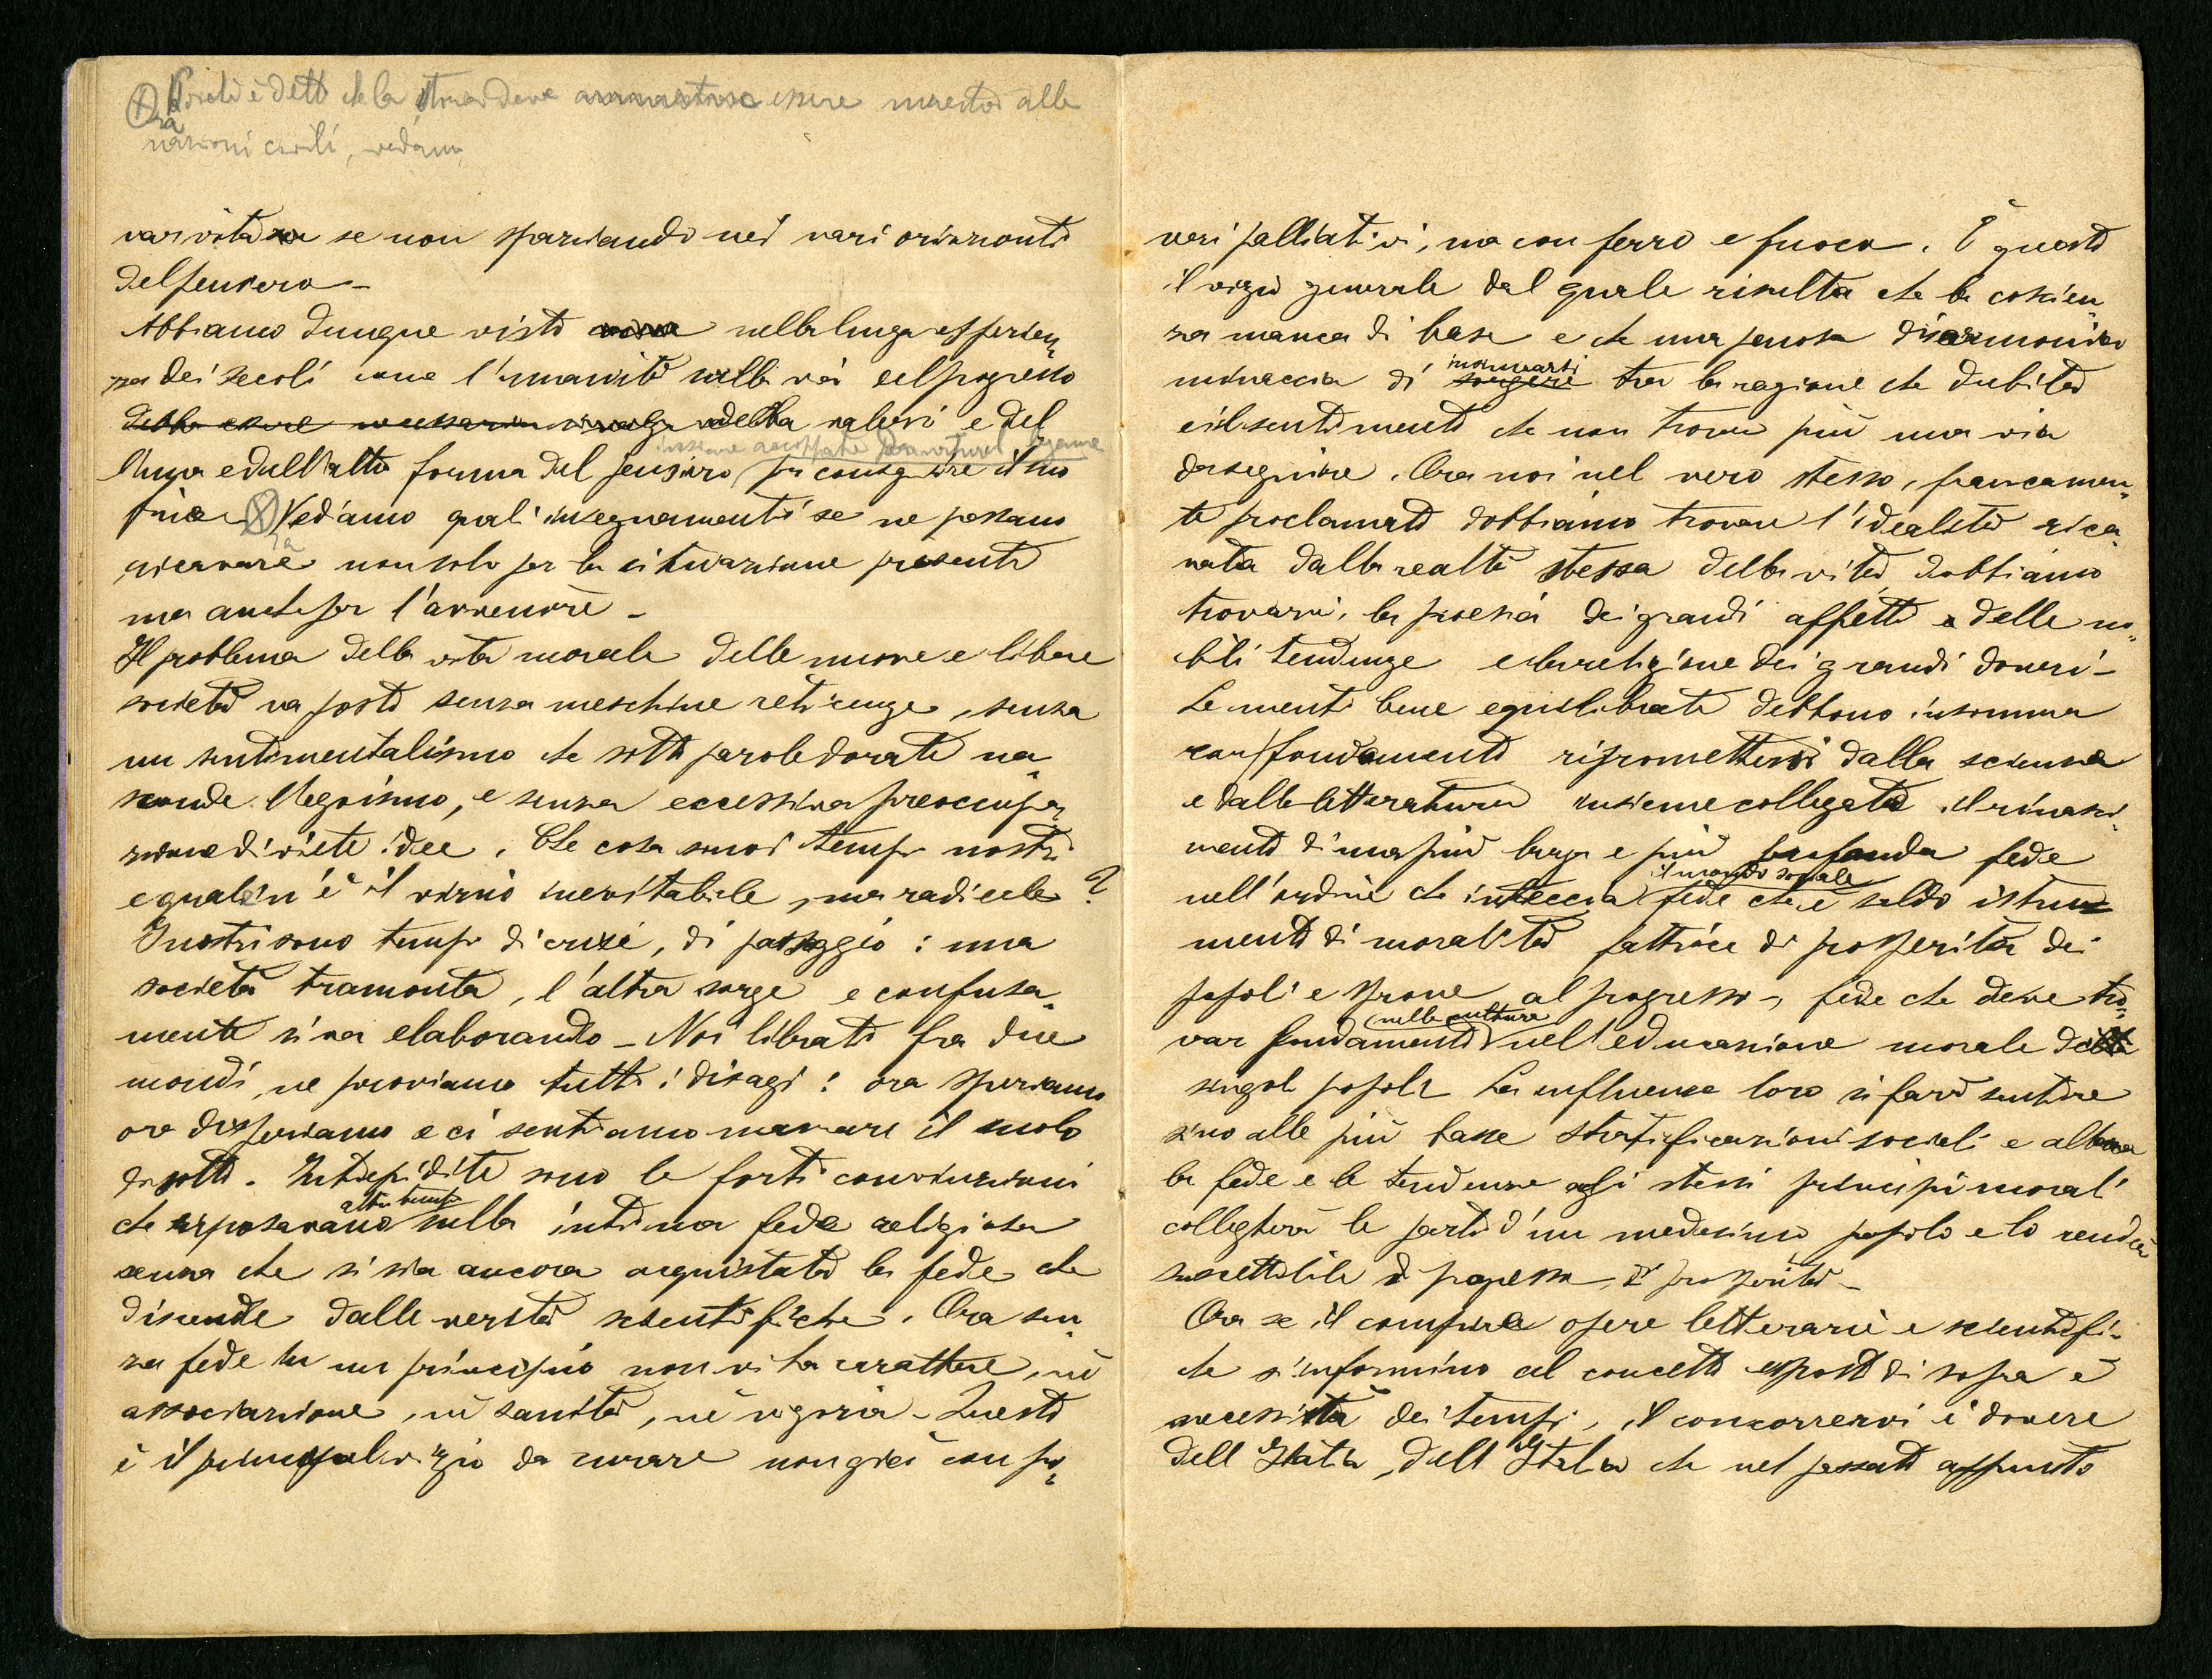 è detto che la storia deve essere maestra alle
nazioni civili, vediamo
var vita se non spaziando nei vari orizzonti
del pensiero -
Abbiamo dunque visto nella lunga esperien
za dei secoli come l'umanità sulla via del progresso
debba essere necessaria si valga della valersi e del
insieme accoppiate legame
l'una e dell'altra forma del pensiero per conseguire il suo
fine Vediamo quali insegnamenti se ne possano
ricavare non solo per la situazione presente
ma anche per l'avvenire -
Il problema della vita morale delle nuove e libere
società va posto senza meschine reticenze, senza
un sentimentalismo che sotto parole dorate na
sconde l'egoismo, e senza eccessiva preoccupa
zione di viete idee. Che cosa sono i tempi nostri
e qual n'è il vizio inevitabile, ma radicale?
I nostri sono tempi di crisi, di passaggio: una
società tramonta, l'altra sorge e confusa
mente si va elaborando - Noi librati fra due
mondi, ne proviamo tutti i disagi: ora speriamo
ora disperiamo e ci sentiamo mancare il suolo
di sotto. Intiepidite sono le forti convinzioni
altri tempi
che riposavano sulla intima fede religiosa
senza che si sia ancora acquistata la fede che
discende dalle verità scientifiche. Ora sen
za fede in un principio non vi ha carattere, nè
associazione, nè sanità, nè vigoria - Questo
è il principal vizio da curare non già con po
veri palliativi, ma con ferro e fuoco. È questo
il vizio generale dal quale risulta che la coscien
za manca di base e che una penosa disarmonia
insinuarsi
minaccia di sorgere tra la ragione che dubita
e il sentimento che non trova più una via
da seguire. Ora noi nel vero stesso, francamen
te proclamato dobbiamo trovare l'idealità rica
vata dalla realtà stessa della vita dobbiamo
trovarvi, la poesia dei grandi affetti e delle no
bili tendenze e la religione dei grandi doveri -
Le menti bene equilibrate debbono insomma
con fondamento ripromettersi dalla scienza
e dalla letteratura insieme collegate il rinasci
mento di una più larga e più profonda fede
il mondo sociale
nell'ordine che intreccia fede che è saldo istru
mento di moralità fattrice di prosperità dei
popoli e sprone al progresso, fede che deve tro
nella cultura
var fondamento nell'educazione morale dei
singoli popoli La influenza loro si farà sentire
sino alle più basse stratificazioni sociali e allora
la fede e le tendenze agli stessi principi morali
collegherà le parti d'un medesimo popolo e lo renderà
suscettibile di progresso, di prosperità -
Ora se il compire opere letterarie e scientifi
che s'informino al concetto esposto di sopra è
necessità dei tempi, il concorrervi è dovere
dell'Italia, dell'Italia che nel passato appunto